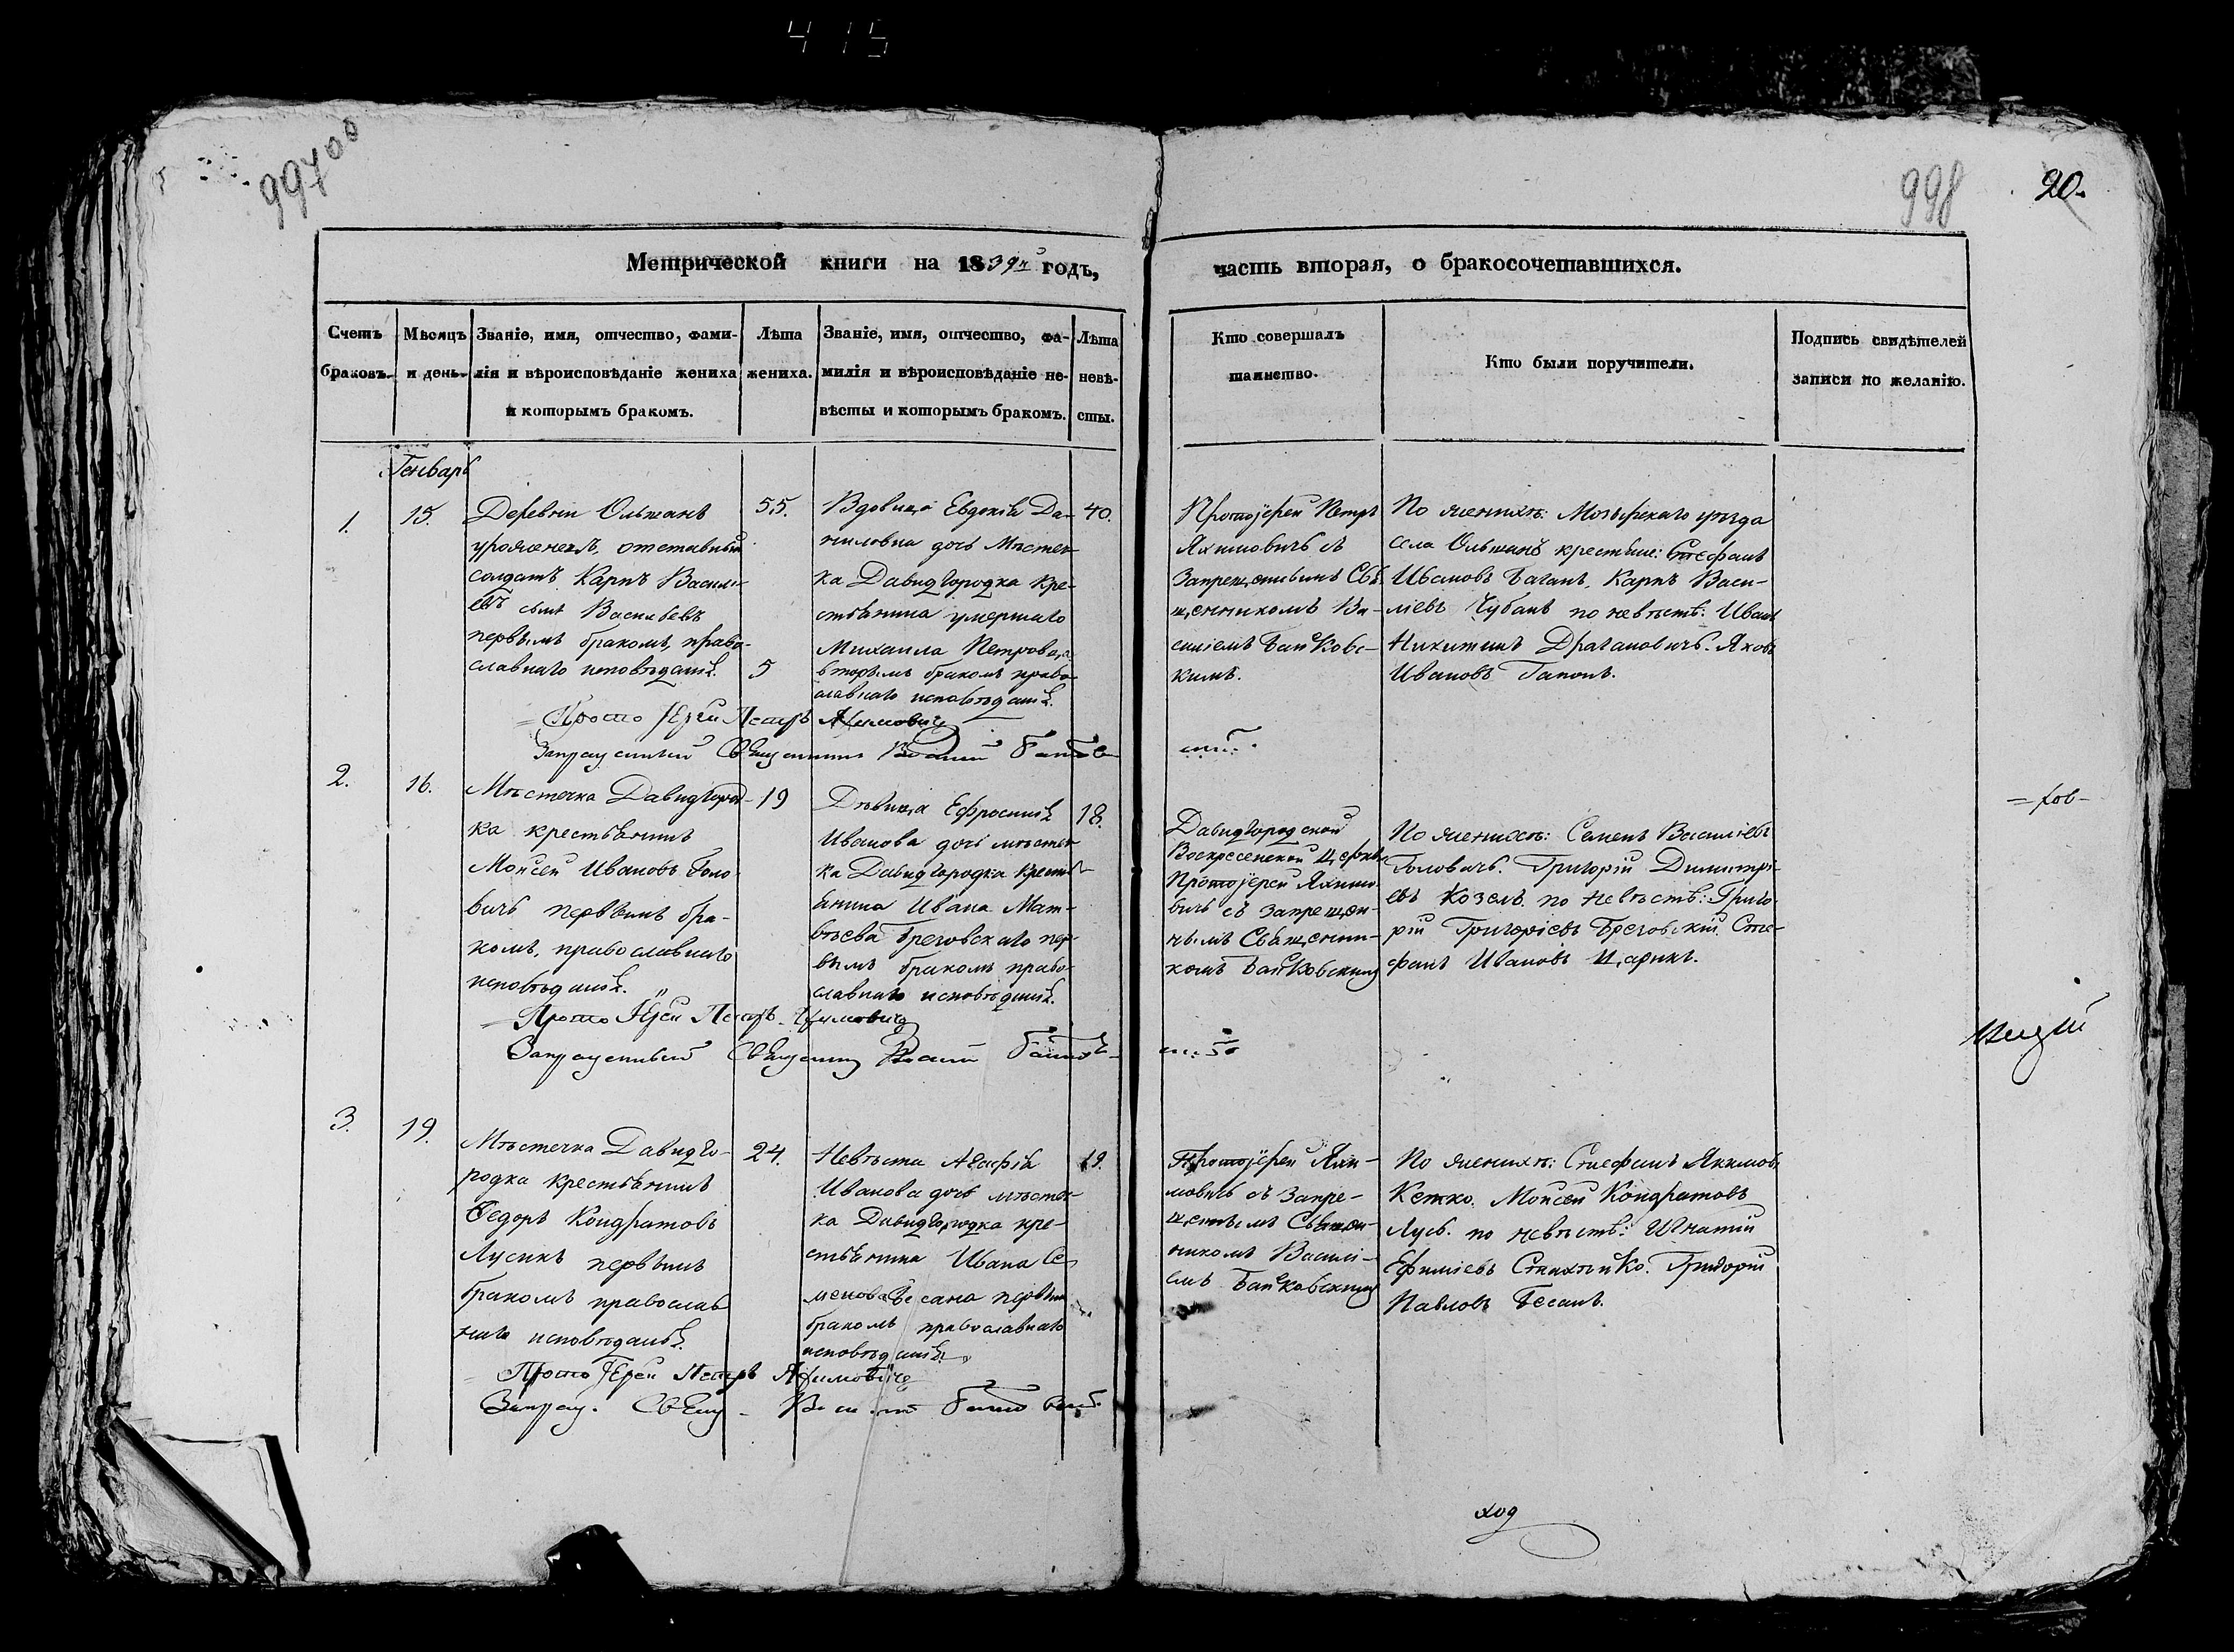 415
997
998
20.
Метрической книги на 1839й годъ,
часть вторая, о бракосочетавшихся.
Счетъ
браковъ.
Мѣсяцъ
и день.
Званіе, имя, отчество, фами-
лія и вѣроисповѣданіе жениха
и которымъ бракомъ.
Лѣта
жениха.
Званіе, имя, отчество, фа-
милія и вѣроисповѣданіе не-
вѣсты и которымъ бракомъ.
Лѣта
невѣ-
сты.
Кто совершалъ
таинство.
Кто были поручители.
Подпись свидѣтелей
записи по желанію.
Генварь
1.
15.
Деревни Ольманъ
уроженецъ, отставный
солдатъ Карпъ Василі-
евъ сынъ Васильевъ
первымъ бракомъ, право-
славнаго исповѣданія.
55.
5
Вдовица Евдокія Да-
ниловна дочь Мѣстеч-
ка Давидгородка кре-
стьянина умершаго
Михаила Петровача
вторымъ бракомъ право-
славнаго исповѣданія.
40.
Протоіерей Петръ
Яхимовичъ съ
Запрещеннымъ Свя-
щенникомъ Ва-
силіемъ Байковс-
кимъ.
По женихѣ: Мозырскаго уѣзда
села Ольманъ крестьяне: Стефанъ
Ивановъ Баганъ, Карпъ Васи-
ліевъ Чубанъ по невѣстѣ: Иванъ
Никитинъ Драгановичъ. Яковъ
Ивановъ Гапонъ.
Протоіерей Петръ Яхимовичъ
Запрещенный Священникъ Василій Байков-
скій
2.
16.
Мѣстечка Давидгород-
ка крестьянинъ
Мойсей Ивановъ Голо-
вичъ первымъ бра-
комъ, православнаго
исповѣданія.
19
Дѣвица Ефросинія
Иванова дочь мѣстеч-
ка Давидгородка крестья-
янина Ивана Мат-
вѣева Бреговскаго пер-
вымъ бракомъ право-
славнаго исповѣданія.
18.
Давидгородской
Воскресенской церкви
Протоіерей Яхимо-
вичъ съ Запрещен-
нымъ Священни-
комъ Байковскимъ
По женихѣ: Семенъ Василіевъ
Головичъ. Григорій Димитрі-
евъ Козелъ. по Невѣстѣ: Григо-
рій Григоріевъ Бреговскій. Сте-
фанъ Ивановъ Царикъ.
Протоіерей Петръ Яхимовичъ
Запрещенный Священникъ Василій Байков-
скій
3.
19.
Мѣстечка Давидго-
родка крестьянинъ
Федоръ Кондратовъ
Лусикъ первымъ
бракомъ православ
наго исповѣданія.
24.
Невѣста Агафія
Иванова дочь мѣстеч-
ка Давидгородка кре-
стьянина Ивана Се-
менова Бесана первым
бракомъ православнаго
исповѣданія.
19.
Протоіерей Яхи-
мовичъ съ Запре-
щеннымъ Священ-
никомъ Василі-
емъ Байковскимъ
По женихѣ: Стефанъ Якимовъ
Кежко. Мойсей Кондратовъ
Лусь. по невѣстѣ: Игнатій
Ефиміевъ Стахѣйко. Григорій
Павловъ Бесанъ.
Протоіерей Петръ Яхимовичъ
Запрещ. Свящ. Василій Байковскій